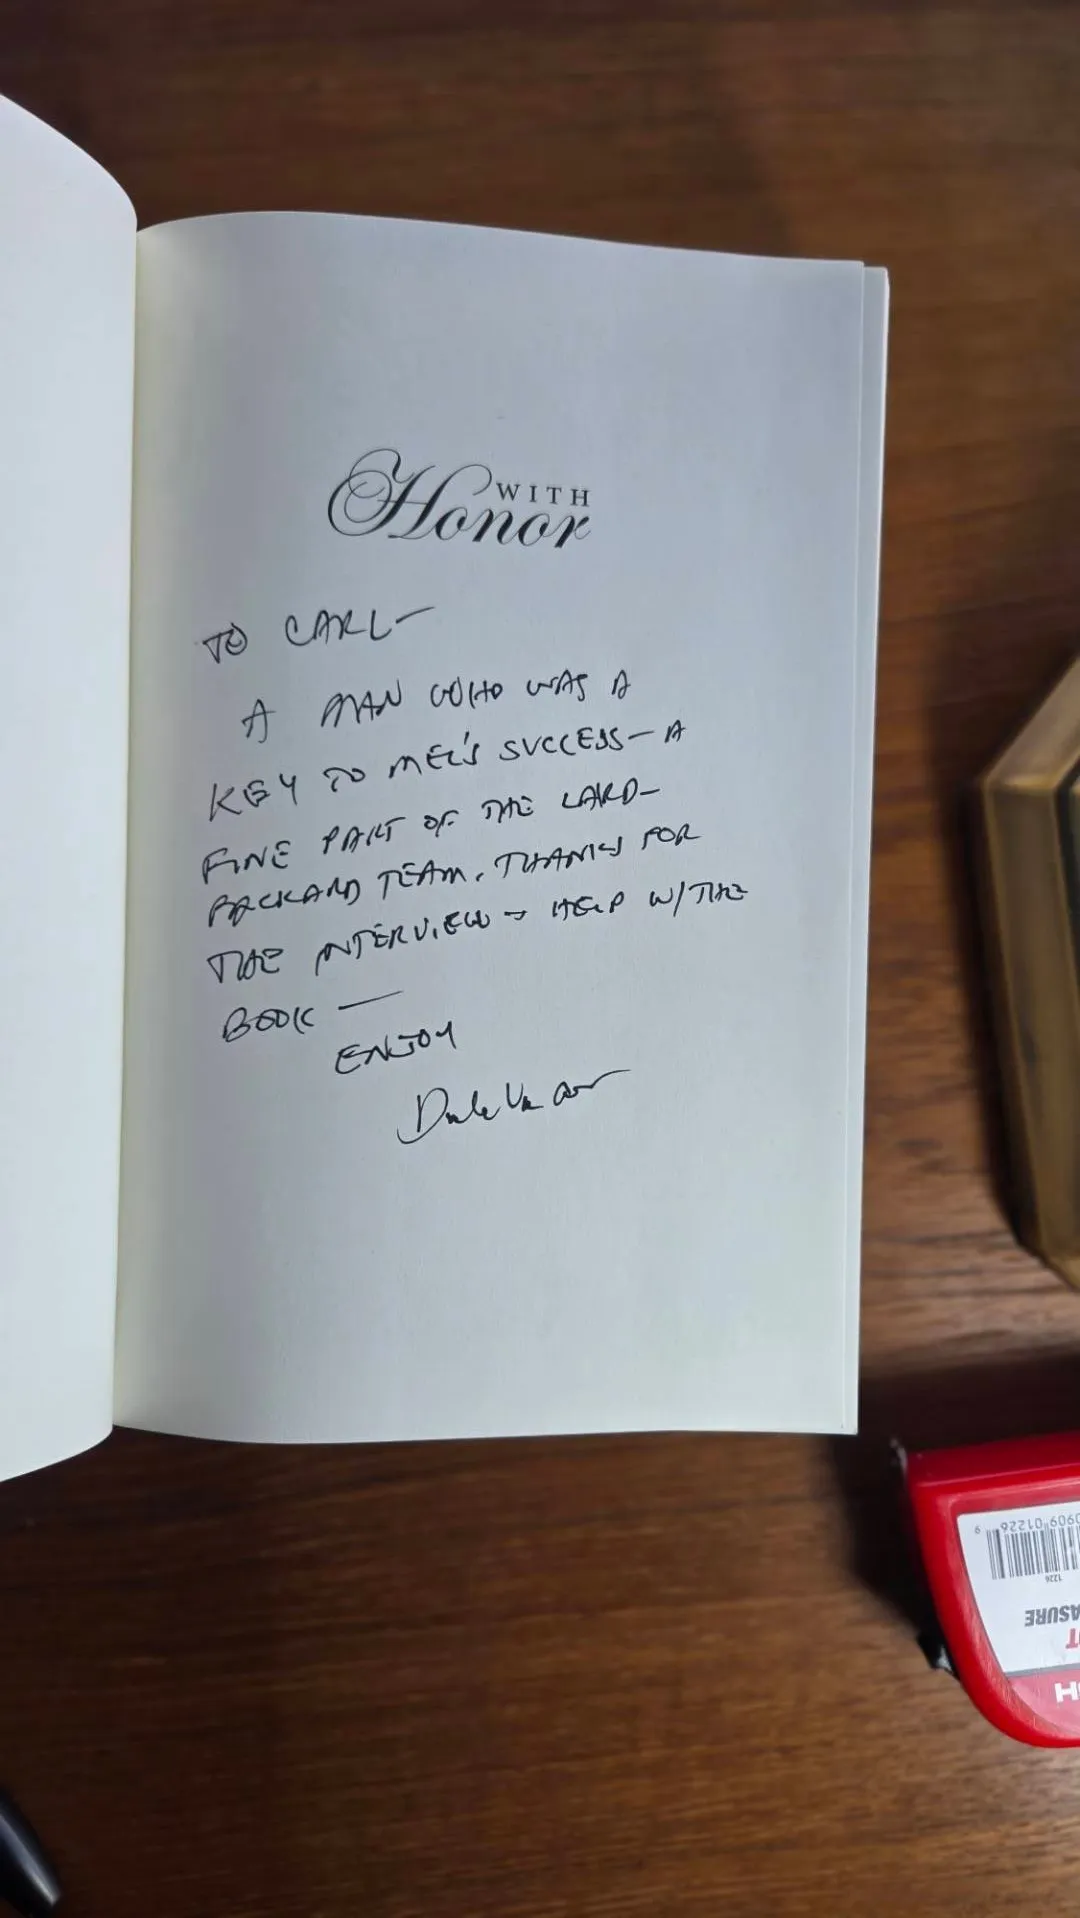 WITH
Honor
TO CARL—
A MAN WHO WAS A
KEY TO MEL'S SUCCESS— A
FINE PART OF THE LAIRD—
PACKARD TEAM. THANKS FOR
THE INTERVIEW → HELP W/THE
BOOK —
ENJOY
Dale Van Atta
0909 01226 9
1226
ASURE
T